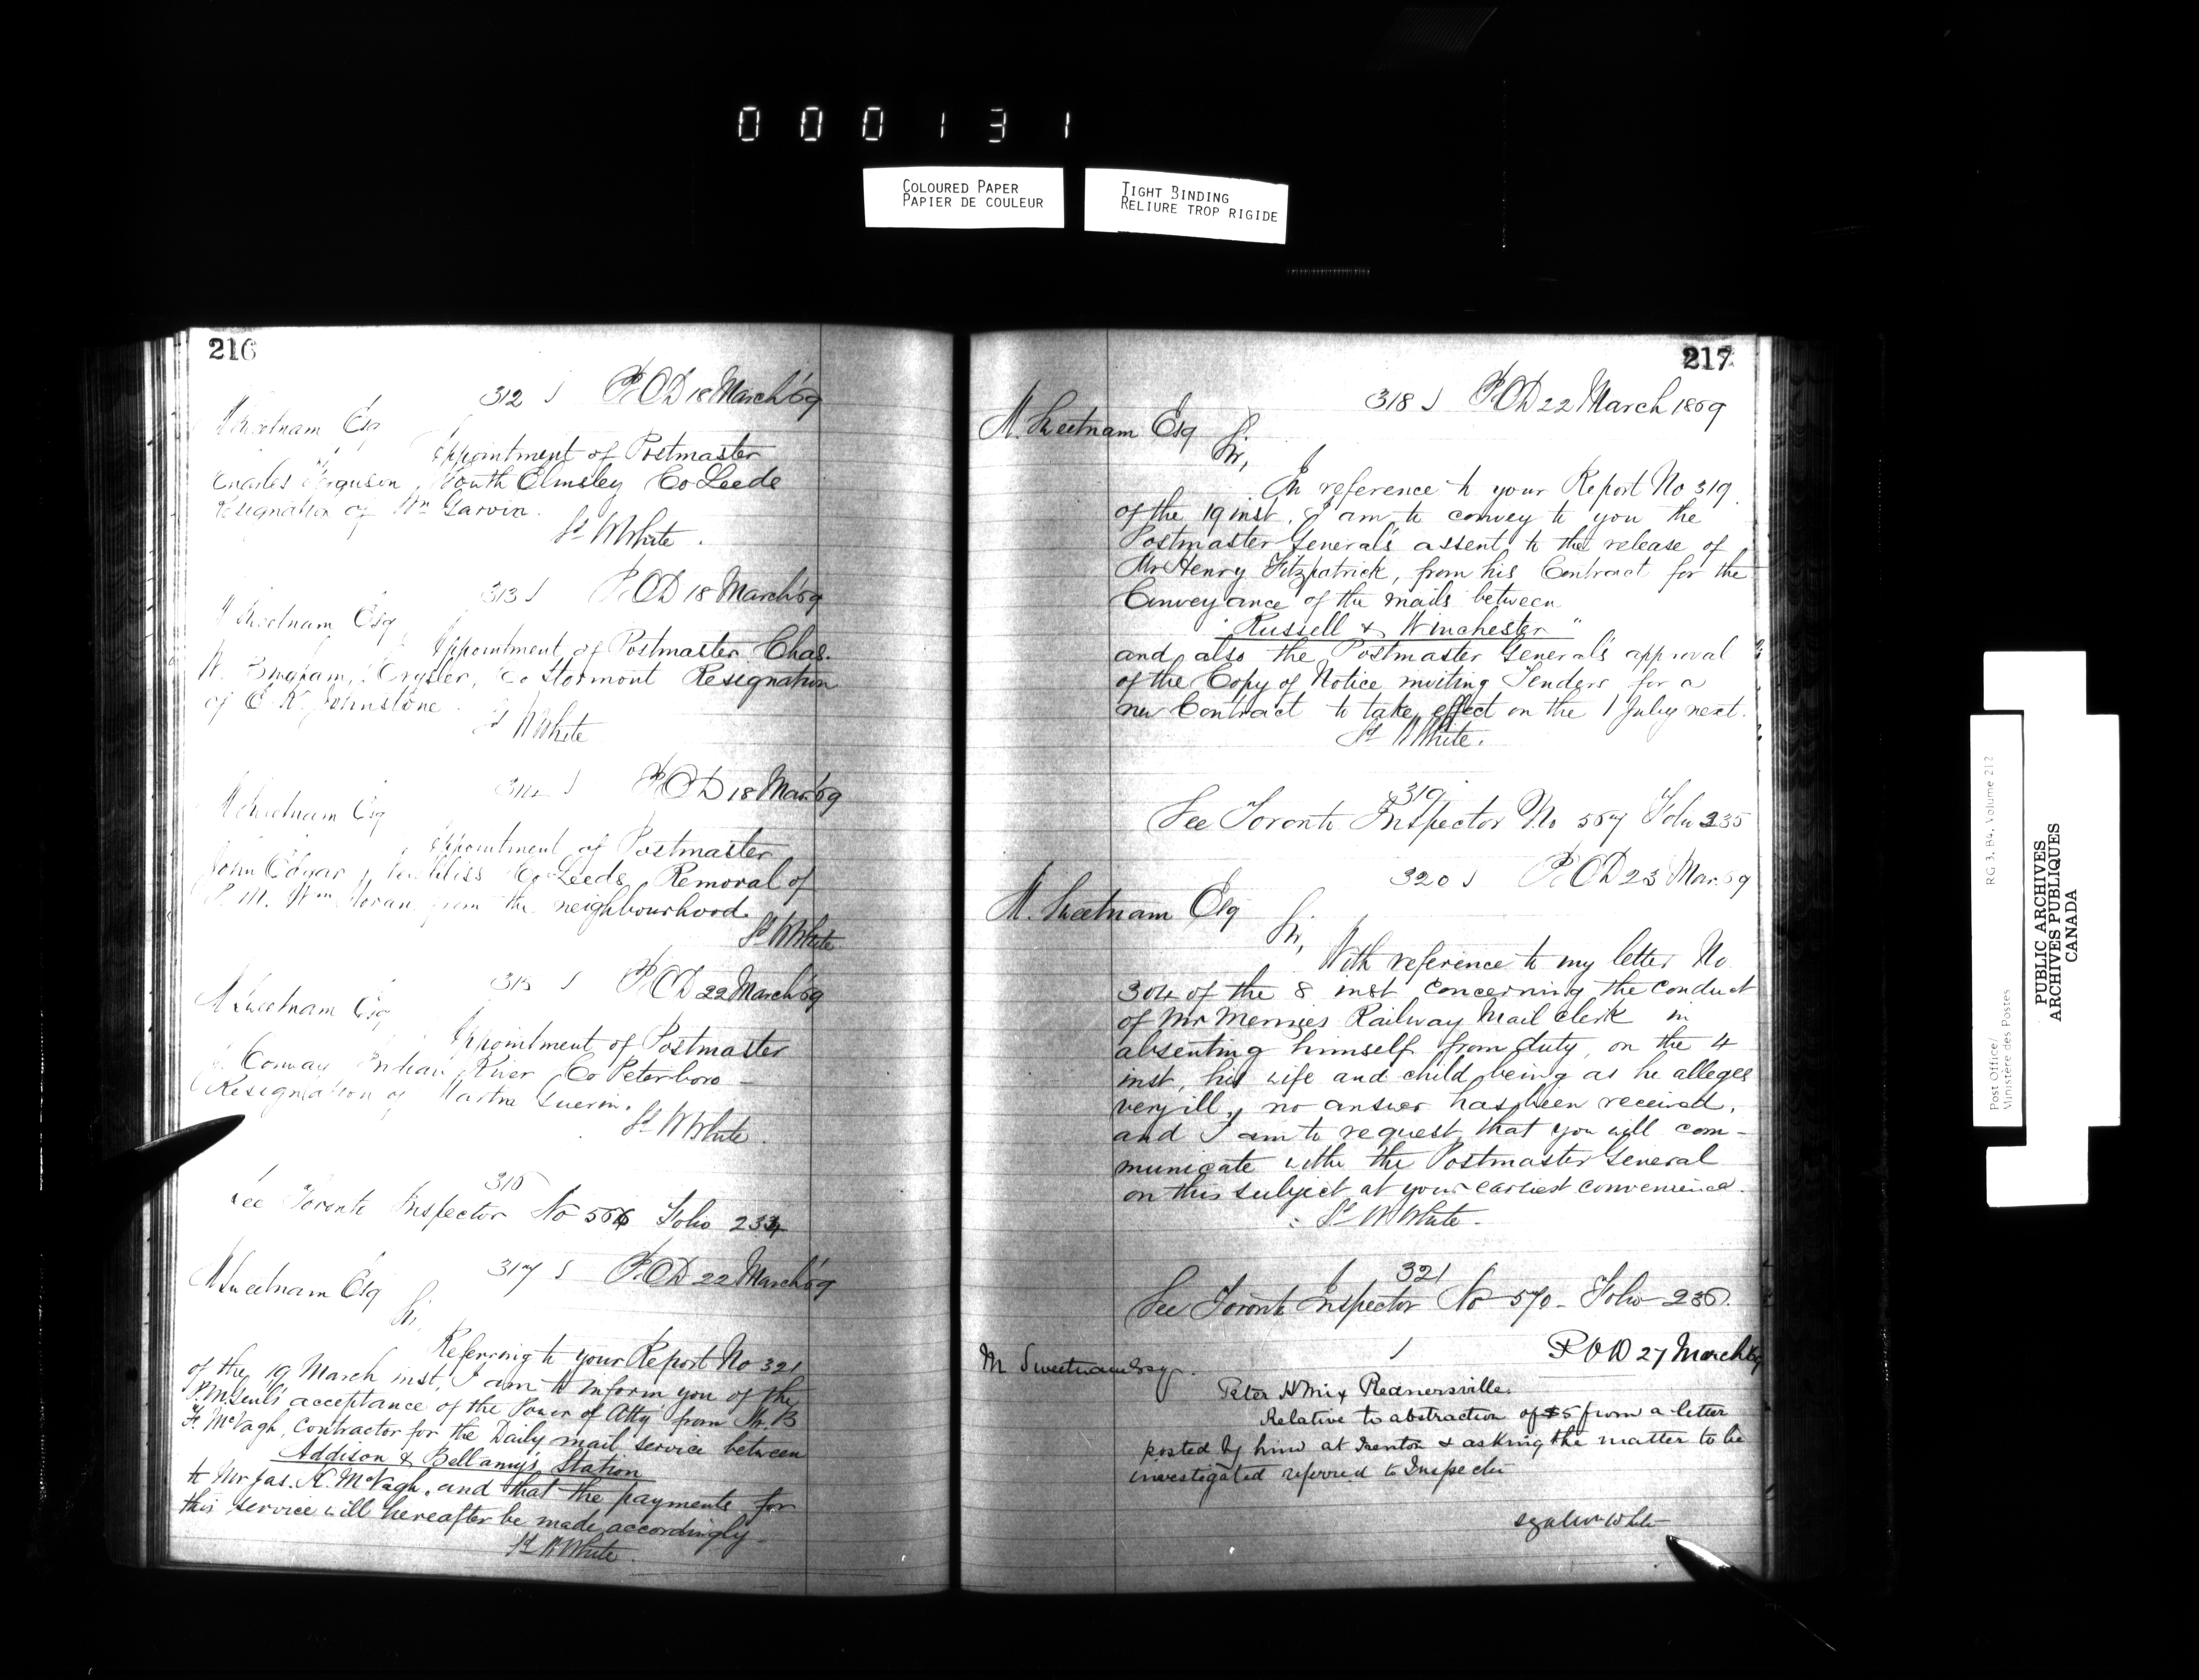 000131
COLOURED PAPER
PAPIER DE COULEUR
TIGHT BINDING
RELIURE TROP RIGIDE
216
312 S P.O.D 18 March '69
M Sweetnam Esq
Appointment of Postmaster
Charles Ferguson, South Elmsley Co Leeds
Resignation of Wm Garvin.
Sd W White.
313 S P.O.D 18 March '69
M Sweetnam Esq
Appointment of Postmaster Chas.
W. Bingham, Crysler, Co Stormont Resignation
of E. R. Johnstone.
Sd W White
314 S P.O.D 18 Mar. '69
M Sweetnam Esq
Appointment of Postmaster
John Edgar, Co Leeds, Removal of
P.M. Wm Moran from the neighbourhood.
Sd W White
315 S P.O.D 22 March '69
M Sweetnam Esq
Appointment of Postmaster
Conway Indian River, Co Peterboro -
Resignation of Martin Guerin.
Sd W White.
316
See Toronto Inspector No 566 Folio 234
317 S P.O.D 22 March '69
M Sweetnam Esq
Sir,
Referring to your Report No 321
of the 19 March inst, I am to inform you of the
P.M. Genl's acceptance of the Power of Atty from Mr. B
F. McVagh, Contractor for the Daily mail service between
Addison & Bellamy's Station
to Mr Jas. H. McVagh, and that the payments for
this service will hereafter be made accordingly -
Sd W White.
217
318 S P.O.D 22 March 1869
M. Sweetnam Esq
Sir,
In reference to your Report No 319
of the 19 inst, I am to convey to you the
Postmaster General's assent to the release of
Mr Henry Fitzpatrick, from his Contract for the
Conveyance of the mails between
"Russell & Winchester"
and also the Postmaster General's approval
of the Copy of Notice inviting Tenders for a
new Contract to take effect on the 1 July next.
Sd W White.
319
See Toronto Inspector No 567 Folio 235
320 S P.O.D 23 Mar. 69
M. Sweetnam Esq
Sir,
With reference to my letter No
304 of the 8 inst concerning the conduct
of Mr Menzies Railway Mail Clerk in
absenting himself from duty, on the 4
inst, his wife and child being as he alleges
very ill, no answer has been received,
and I am to request that you will com-
municate with the Postmaster General
on this subject at your earliest convenience.
Sd W White.
321
See Toronto Inspector No 570 - Folio 236.
P O D 27 March 69
M Sweetnam Esqr.
Peter H Mix Rednersville.
Relative to abstraction of $5 from a letter
posted by him at Trenton & asking the matter to be
investigated referred to Inspector
White
Post Office/
Ministère des Postes
RG 3, B4, Volume 212
PUBLIC ARCHIVES
ARCHIVES PUBLIQUES
CANADA